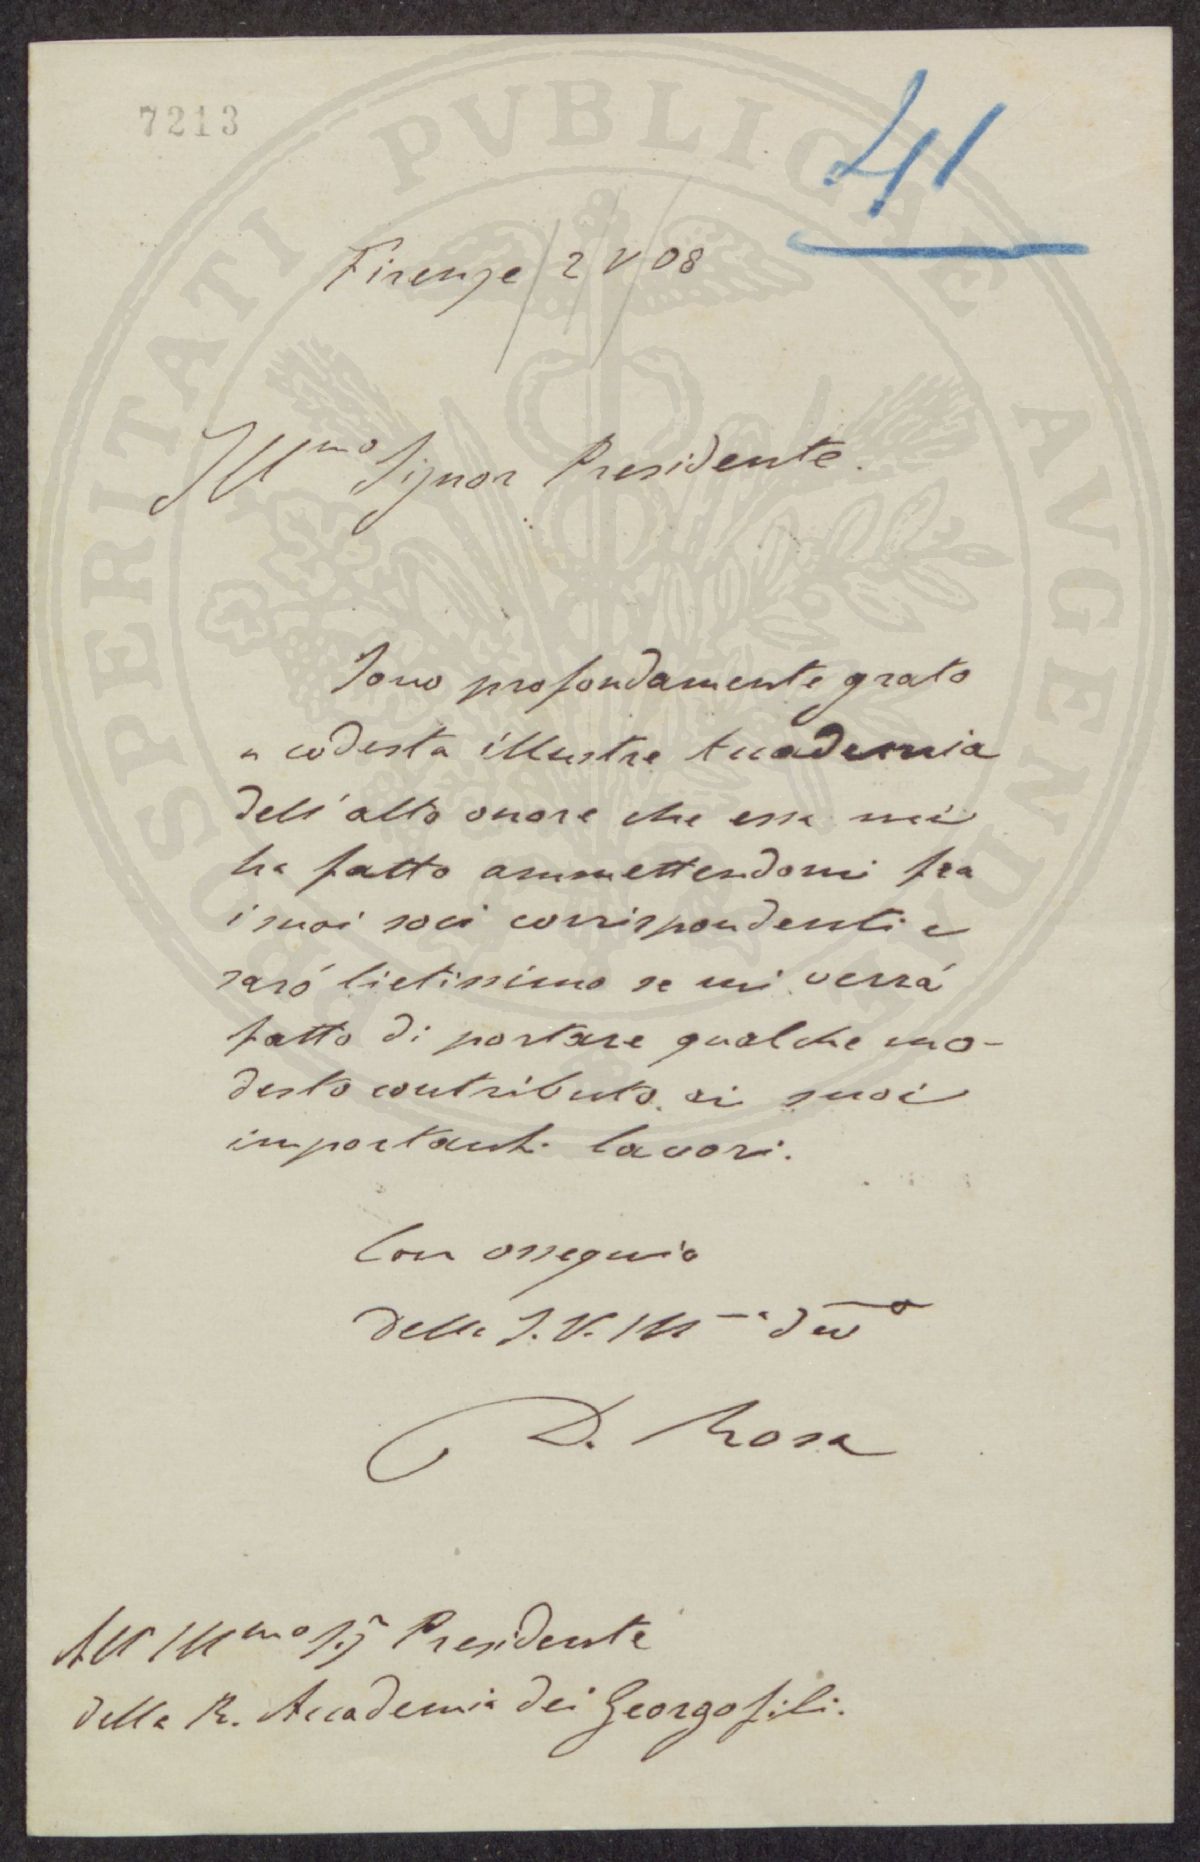 7213
41
Firenze 2 V 08
Ill.mo Signor Presidente.
Sono profondamente grato
a codesta illustre Accademia
dell'alto onore che essa mi
ha fatto ammettendomi fra
i suoi soci corrispondenti e
sarò lietissimo se mi verrà
fatto di portare qualche mo-
desto contributo ai suoi
importanti lavori.
Con ossequio
della S.V. Ill.ma dev.o
D. Rosa
All' Ill.mo Sig.r Presidente
della R. Accademia dei Georgofili.
PROSPERITATI PVBLICAE AVGENDAE